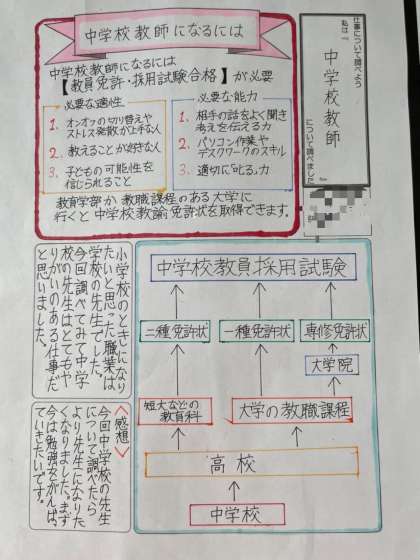 仕事について調べよう
私は『
中学校教師
』
について調べました
中学校教師になるには
中学校教師になるには
【教員免許・採用試験合格】が必要
必要な適性
1. オンオフの切り替えや
ストレス発散が上手な人
2. 教えることが好きな人
3. 子どもの可能性を
信じられること
必要な能力
1. 相手の話をよく聞き
考えを伝える力
2. パソコン作業や
デスクワークのスキル
3. 適切に叱る力
教育学部か教職課程のある大学に
行くと中学校教諭免許状を取得できます。
小学校のときになり
たいと思った職業は
学校の先生でした。
今回調べてみて中学
校の先生はとてもや
りがいのある仕事だ
と思いました。
<感想>
今回中学校の先生
について調べたら
より先生になりた
くなりました。まず
今は勉強をがんばっ
ていきたいです。
中学校教員採用試験
二種免許状
一種免許状
専修免許状
大学院
短大などの
教育科
大学の教職課程
高校
中学校